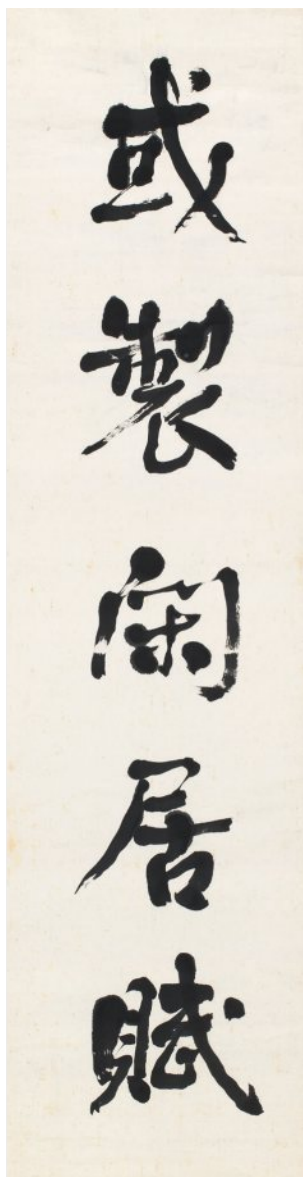 或製閑居賦